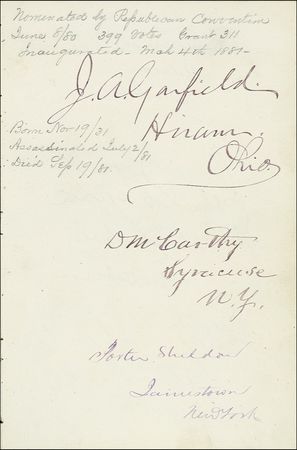 Nominated by Republican Convention
June 8/80 399 Votes Grant 311
Inaugurated - Mch 4th 1881-
J. A. Garfield.
Hiram.
Ohio.
Born Nov 19/31
Assassinated July 2/81
Died Sep 19/81.
D McCarthy
Syracuse
N. Y.
Porter Sheldon
Jamestown
New York